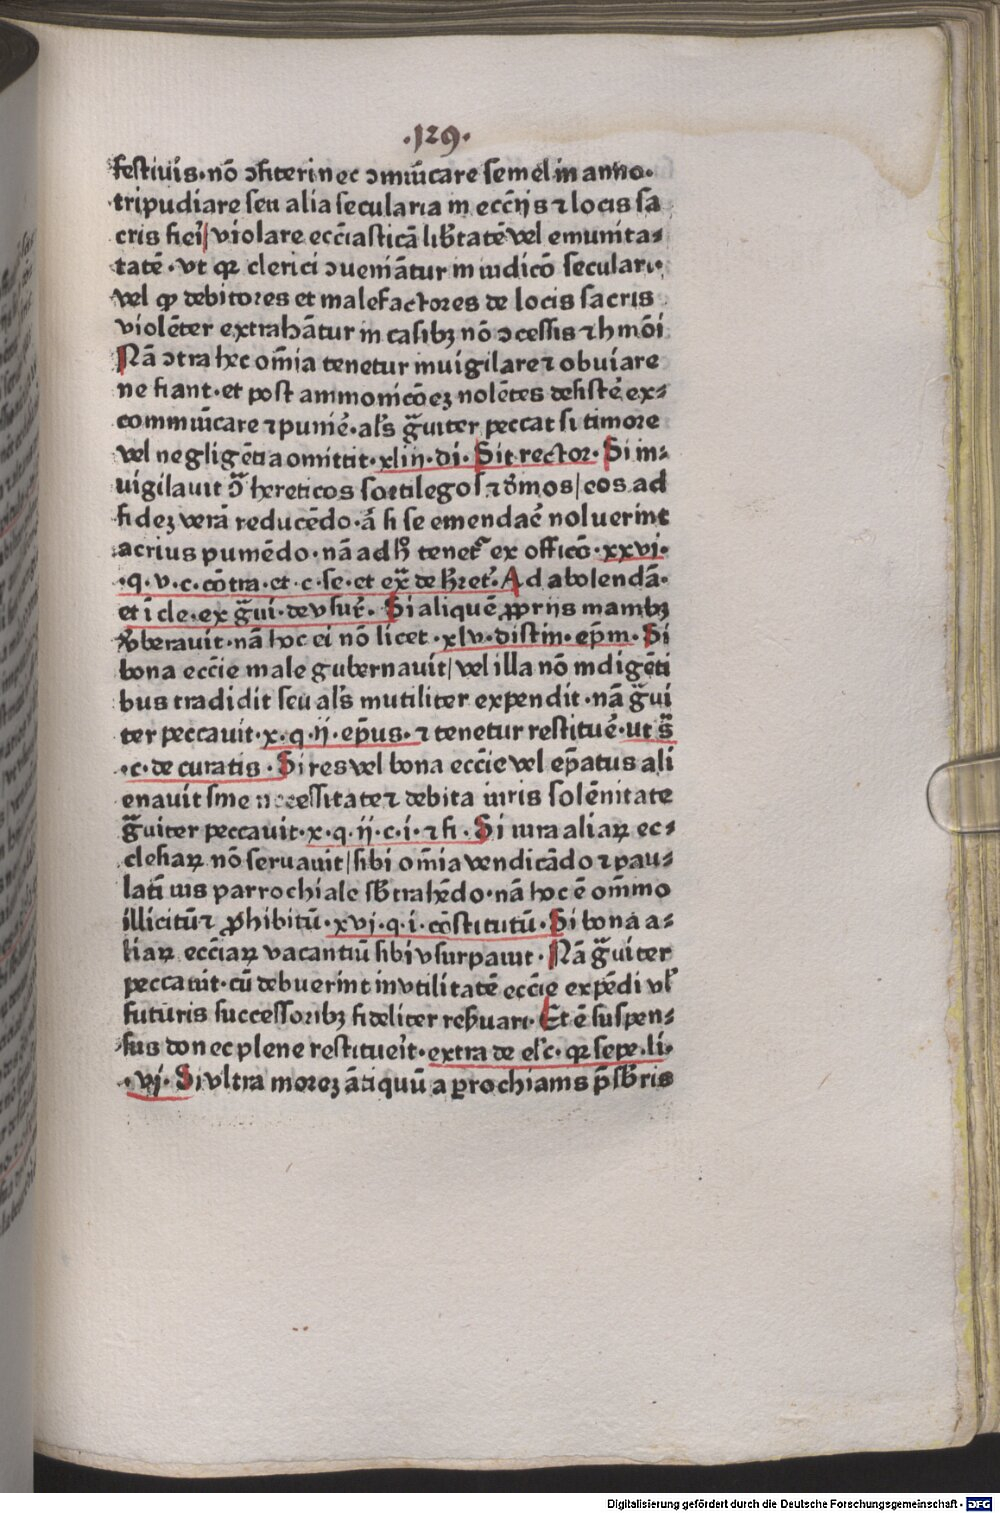 .129.
festiuis·nō ↄfiteri nec ↄmūicare semel in anno·
tripudiare seu alia secularia in ecc̄ijs ⁊ locis sa
cris fieri| violare ecc̄iasticā lib̄tatē vel emunita⸗
tatē·vt ꝙ clerici ↄueniātur in iudicō seculari·
vel ꝙ debitores et malefactores de locis sacris
violēter extrahātur in casibꝫ nō ↄcessis ⁊ hmōi
Nā ↄtra hec om̄ia tenetur inuigilare ⁊ obuiare
ne fiant·et post ammonicōeꝫ nolētes desistē ex⸗
commūicare ⁊ punie᷑·als̄ gͣuiter peccat si timore
vel negligētia omittit·xliij·di·Sit rector·Si in⸗
uigilauit ↄͣ hereticos sortilegos ⁊ dōmos| eos ad
fideꝫ verā reducēdo·aͣ si se emendaē noluerint
acrius puniēdo·nā ad hͦ tenet᷑ ex officō·xxvi·
·q·v·c·cōtra·et·c·se·et exͣ de h̄ret᷑·Ad abolendā·
et ī cle·ex gͣui·de vsur᷑·Si aliquē ꝓprijs manibꝫ
v̄berauit·nā hoc ei nō licet·xlv·distin·ep̄m·Si
bona ecc̄ie male gubernauit| vel illa nō indigēti
bus tradidit seu als̄ inutiliter expendit·nā gͣui
ter peccauit·x·q·ij·ep̄us·⁊ tenetur restituē·ut sͣ
·c·de curatis·Si res vel bona ecc̄ie vel ep̄atus ali
enauit sine necessitate ⁊ debita iuris solēnitate
gͣuiter peccauit·x·q·ij·c·i·⁊ fi·Si iura aliaꝝ ec⸗
clesiaꝝ nō seruauit| sibi om̄ia vendicādo ⁊ pau⸗
latī uis parrochiale sb̄trahēdo·nā hoc ē om̄ino
illicitū ⁊ ꝓhibitū·xvj·q·i·cōstitutū·Si bona a⸗
liaꝝ ecc̄iaꝝ vacantiū sibi vsurpauit·Nā gͣuiter
peccauit·cū debuerint in vtilitatē ecc̄ie expēdi vl᷑
futuris successoribꝫ fideliter res̄uari·Et ē suspen⸗
sus donec plene restitueīt·extra de elc̄·ꝙ sepe·li·
·vj·Si vltra moreꝫ ātiquū a ꝑrochianis p̄sb̄ris
Digitalisierung gefördert durch die Deutsche Forschungsgemeinschaft - DFG